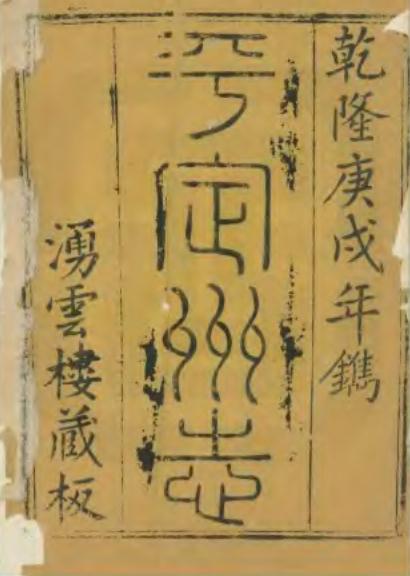 乾隆庚戌年鐫
平定州志
湧雲樓藏板